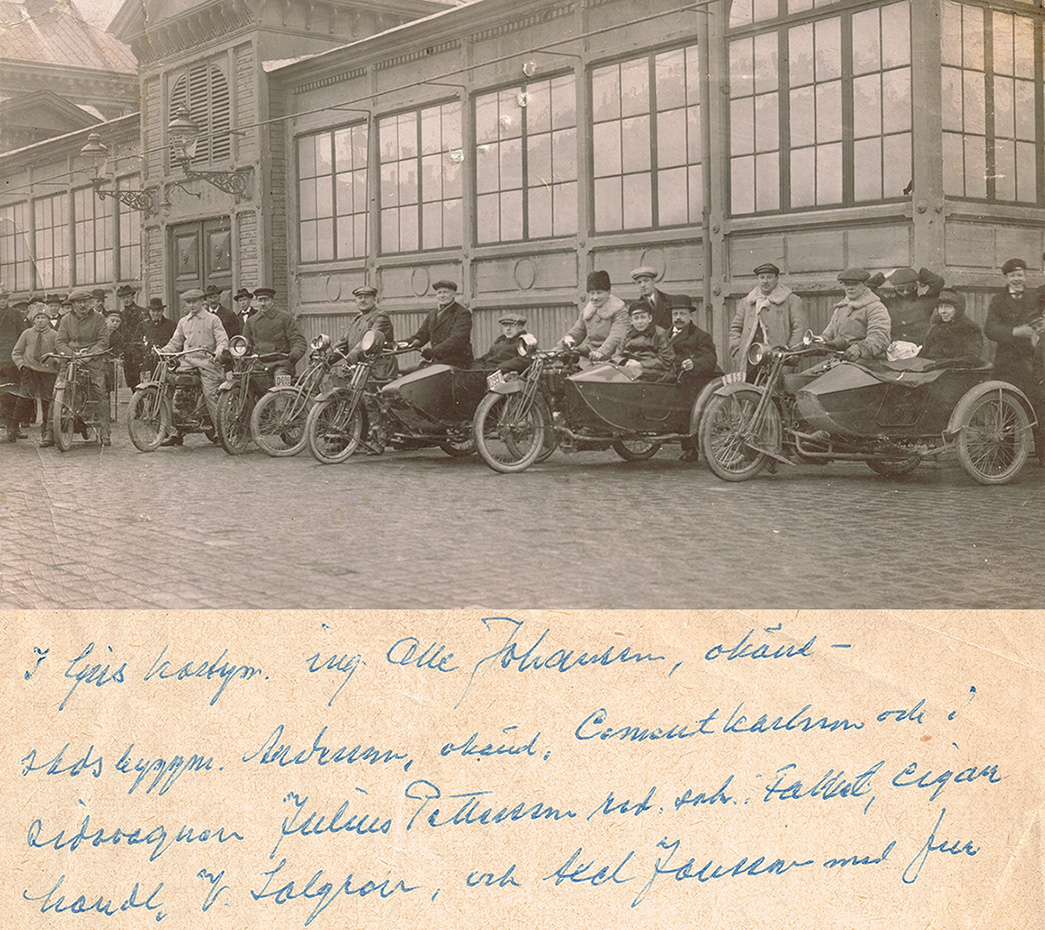 I ljus kostym. ing Olle Johansson, okänd –
skdsbyggm. Andersson, okänd, Cementkarlsson och i
sidovagnen Julius Pettersson red. och. Falket, cigarr
handl, V. Solgren, och Axel Jonsson med fru